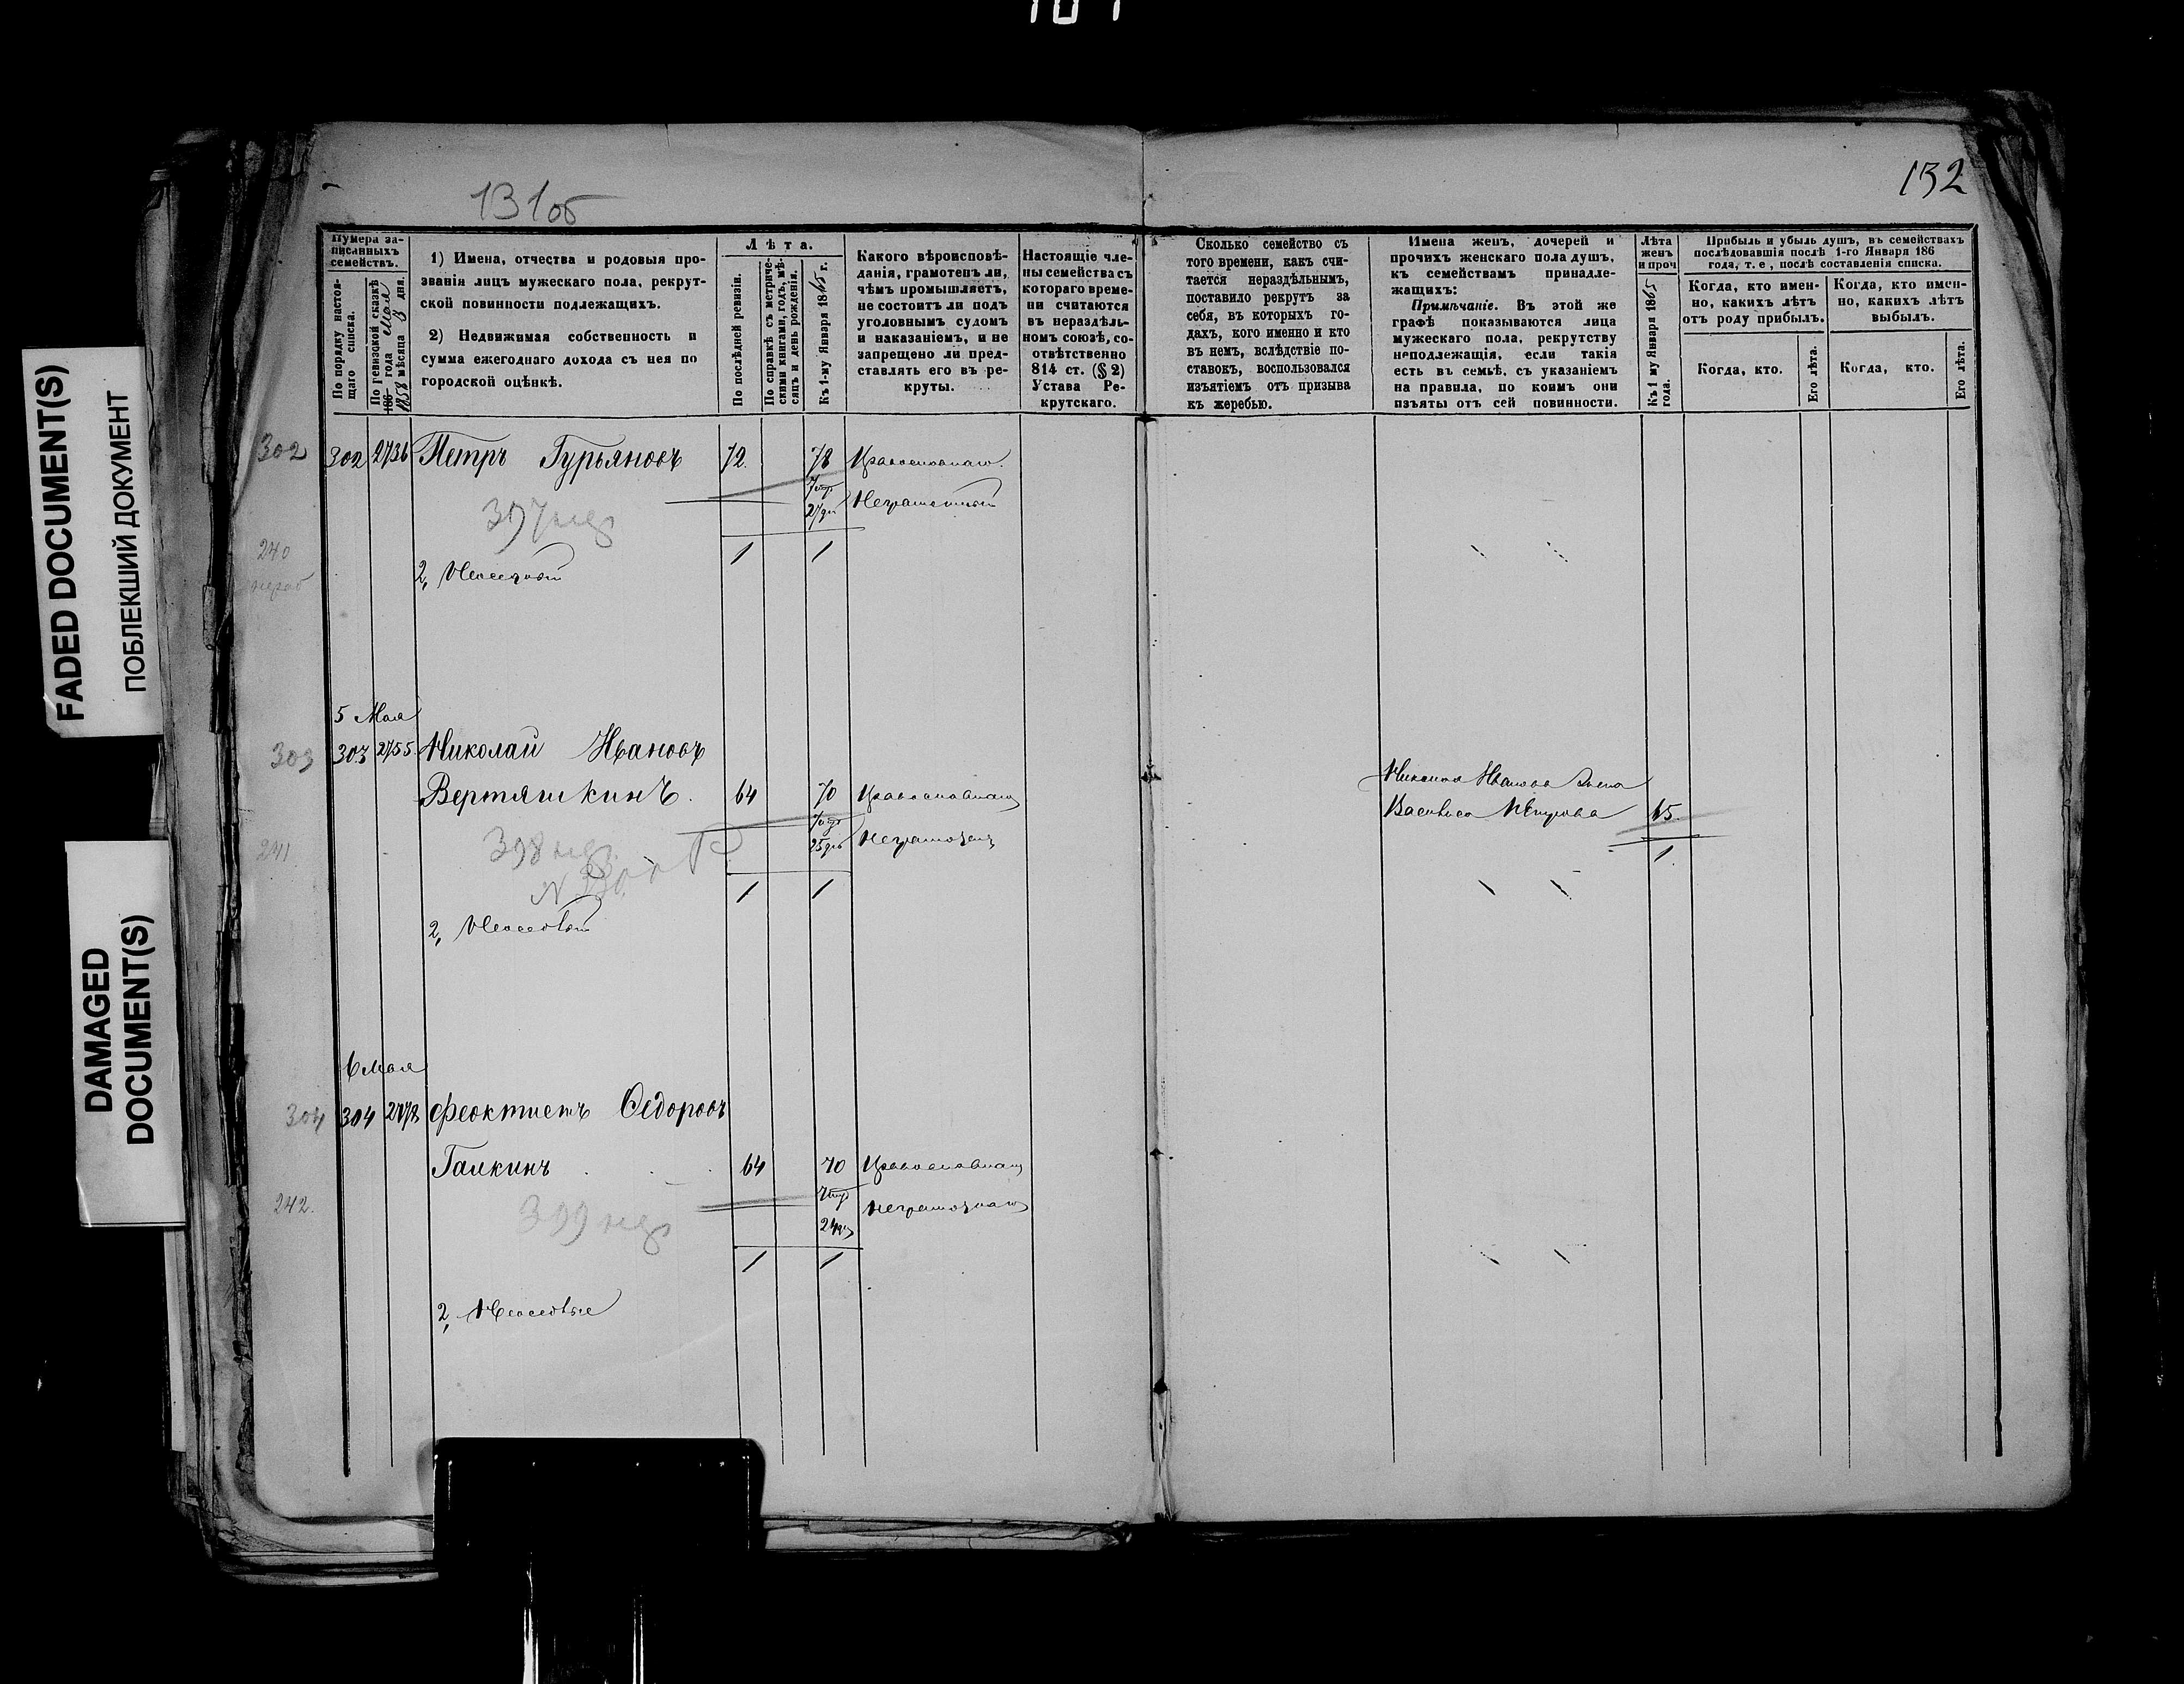 131об
132
FADED DOCUMENT(S)
ПОБЛЕКШИЙ ДОКУМЕНТ
DAMAGED
DOCUMENT(S)
Нумера за-
писанныхъ
семействъ.
По порядку настоя-
щаго списка.
По ревизской сказкѣ
186 года мая
1858 мѣсяца 3 дня.
1) Имена, отчества и родовыя про-
званія лицъ мужескаго пола, рекрут-
ской повинности подлежащихъ.
2) Недвижимая собственность и
сумма ежегоднаго дохода съ нея по
городской оцѣнкѣ.
Лѣта.
По послѣдней ревизіи.
По справкѣ съ метриче-
скими книгами, годъ, мѣ-
сяцъ и день рожденія.
Къ 1-му Января 1865 г.
Какого вѣроисповѣ-
данія, грамотенъ ли,
чѣмъ промышляетъ,
не состоитъ ли подъ
уголовнымъ судомъ
и наказаніемъ, и не
запрещено ли пред-
ставлять его въ ре-
круты.
Настоящіе чле-
ны семейства съ
котораго време-
ни считаются
въ нераздѣль-
номъ союзѣ, со-
отвѣтственно
814 ст. (§ 2)
Устава Ре-
крутскаго.
Сколько семейство съ
того времени, какъ счи-
тается нераздѣльнымъ,
поставило рекрутъ за
себя, въ которыхъ го-
дахъ, кого именно и кто
въ немъ, вслѣдствіе по-
ставокъ, воспользовался
изъятіемъ отъ призыва
къ жеребью.
Имена женъ, дочерей и
прочихъ женскаго пола душъ,
къ семействамъ принадле-
жащихъ:
Примѣчаніе. Въ этой же
графѣ показываются лица
мужескаго пола, рекрутству
неподлежащія, если такія
есть въ семьѣ, съ указаніемъ
на правила, по коимъ они
изъяты отъ сей повинности.
Лѣта
женъ
и проч
Къ 1 му Января 1865
года.
Прибыль и убыль душъ, въ семействахъ
послѣдовавшія послѣ 1-го Января 186
года, т. е., послѣ составленія списка.
Когда, кто имен-
но, какихъ лѣтъ
отъ роду прибылъ.
Когда, кто имен-
но, какихъ лѣтъ
выбылъ.
Когда, кто.
Его лѣта.
Когда, кто.
Его лѣта.
302 302 2736 Петръ Гурьяновъ 72. 78 Православнаго.
27 дн Неграмотный
397
240
1 1
2, Неоседлый
5 Мая
303 303 2755. Николай Ивановъ
Вертяшкинъ. 64 70 Православнаго
25 дн неграмотенъ
Николая Иванова жена
Василиса Петрова 65.
1.
241
398
1 1
2, Неоседлый
6 Мая
304 304 2778 Феоктистъ Ѳедоровъ
Галкинъ 64 70 Православнаго
неграмотнаго
24 дн
242.
399
1 1
2, Неоседлые